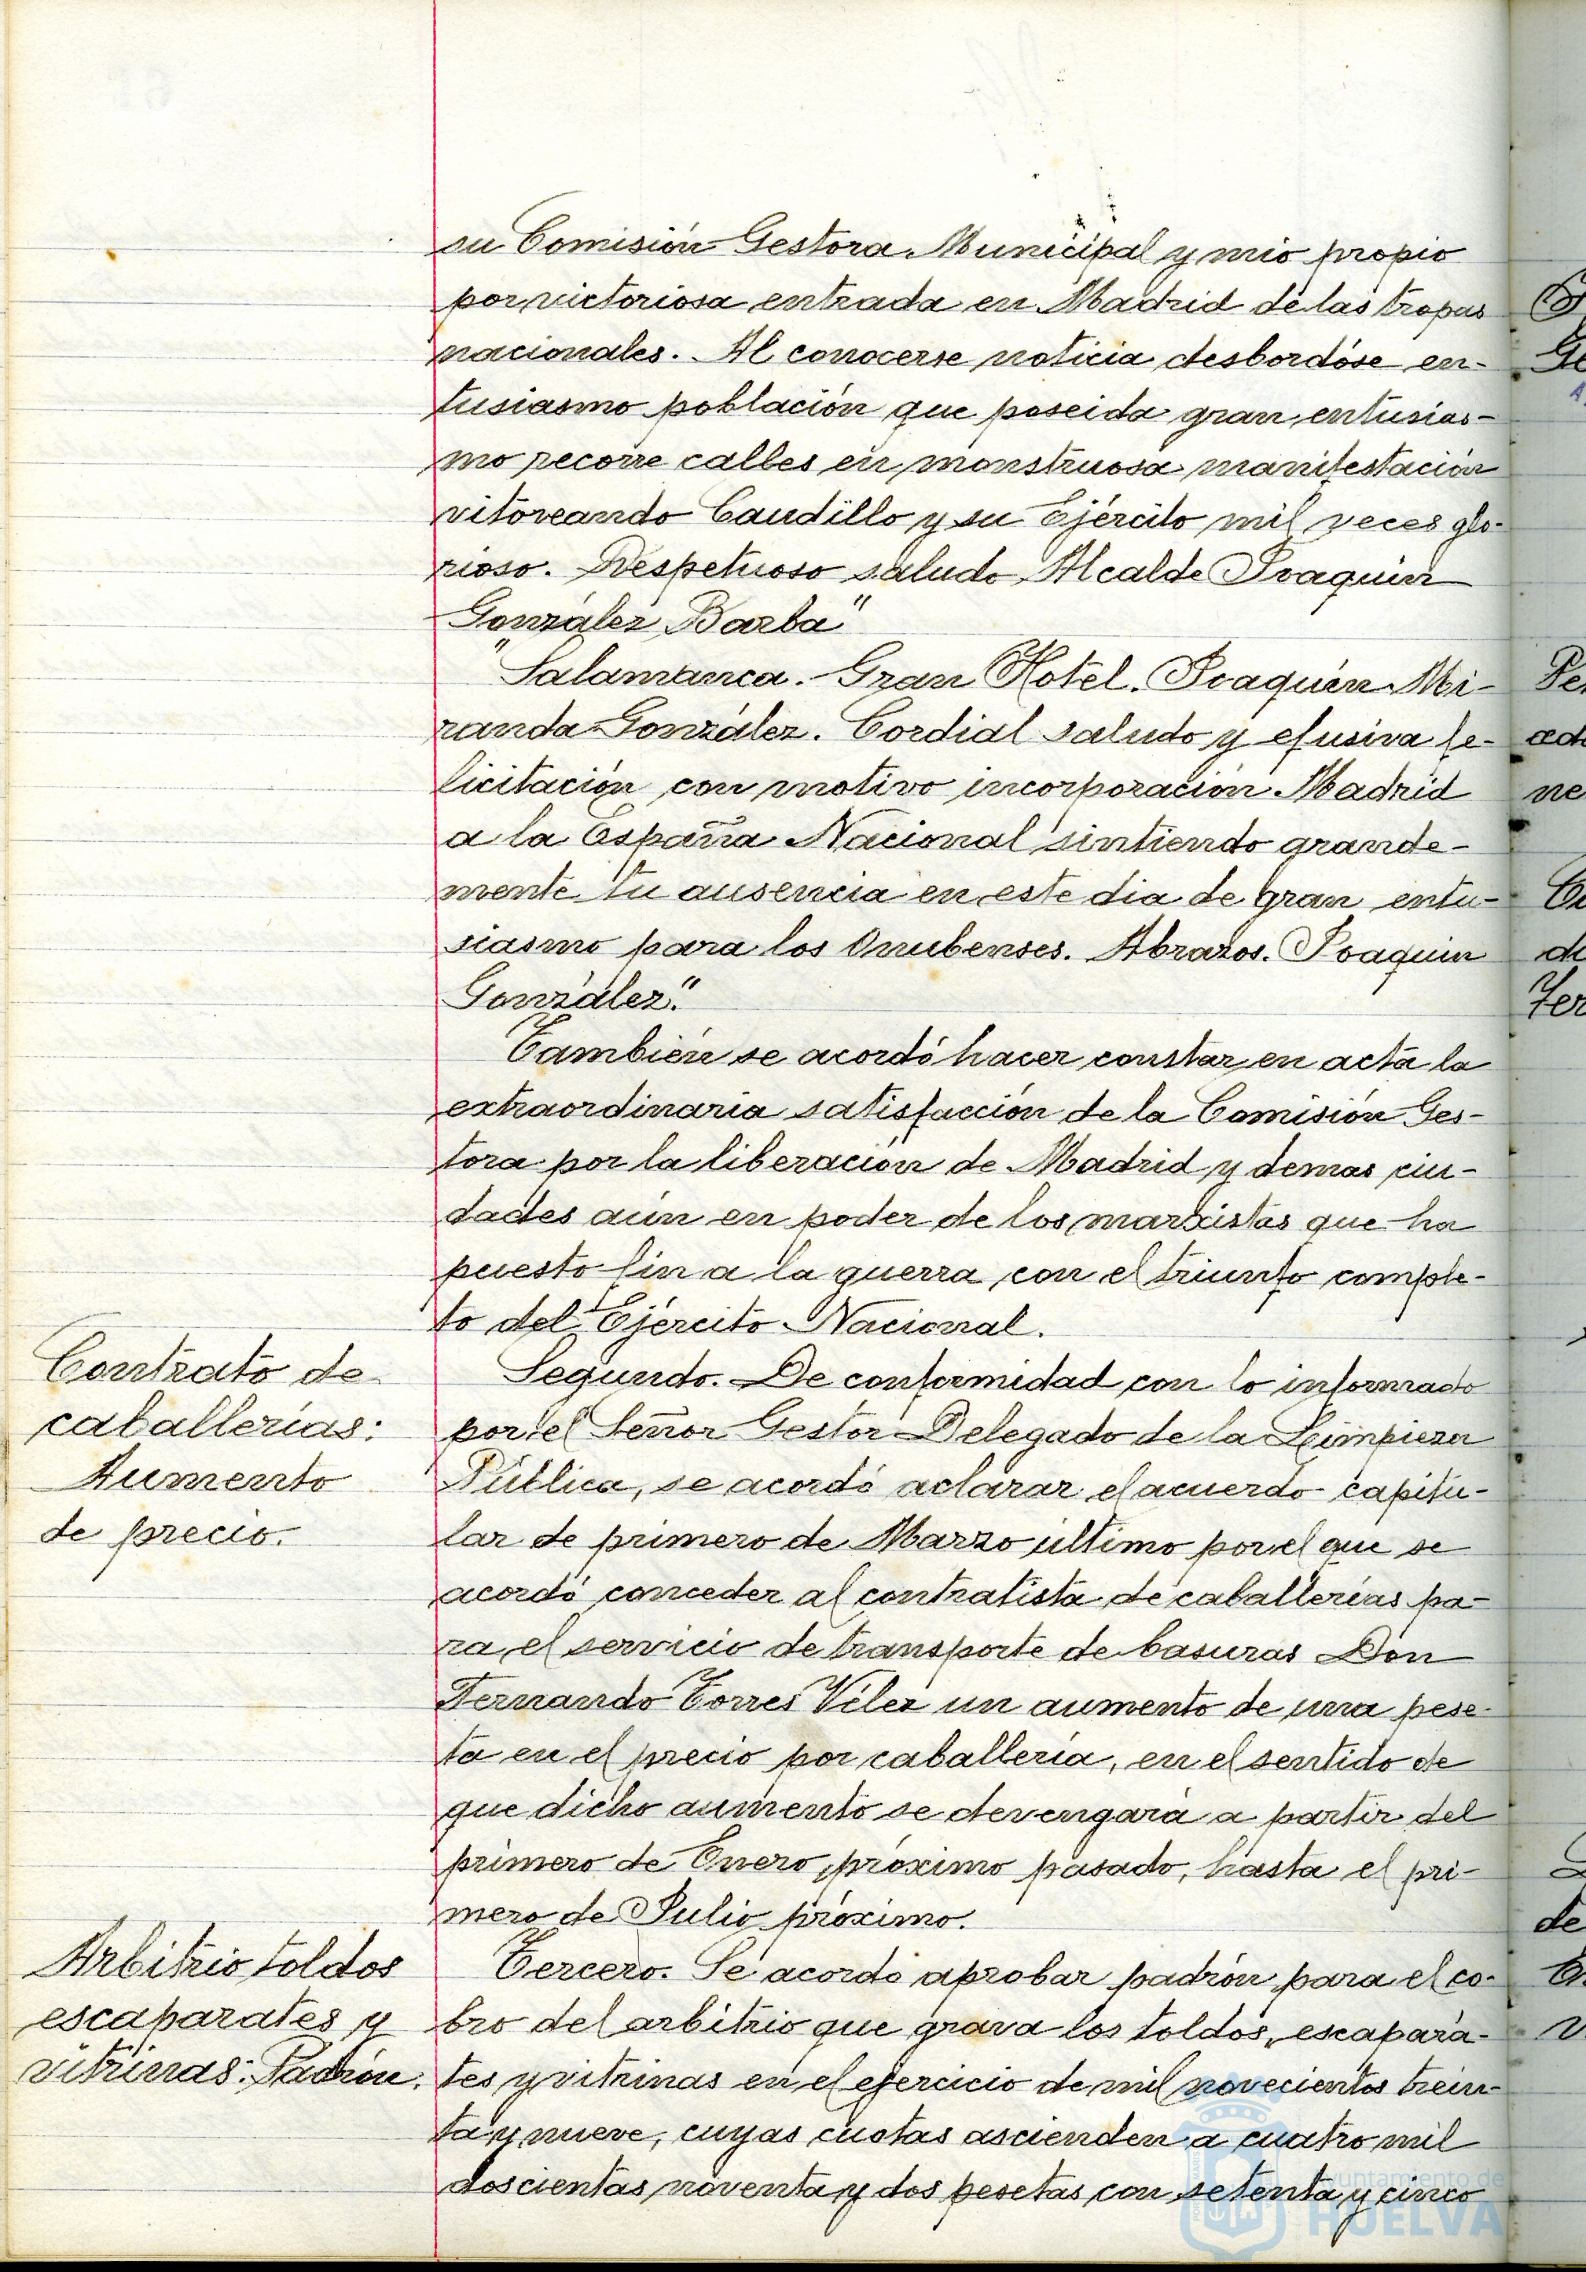 su Comisión Gestora Municipal y mio propio
por victoriosa entrada en Madrid de las tropas
nacionales. Al conocerse noticia desbordóse en-
tusiasmo población que poseida gran entusias-
mo recorre calles en monstruosa manifestación
vitoreando Caudillo y su Ejército mil veces glo-
rioso. Respetuoso saludo Alcalde Joaquin
González Barba"
"Salamanca. Gran Hotel. Joaquín Mi-
randa González. Cordial saludo y efusiva fe-
licitación con motivo incorporación Madrid
a la España Nacional sintiendo grande-
mente tu ausencia en este dia de gran entu-
siasmo para los Onubenses. Abrazos. Joaquin
González."
También se acordó hacer constar en acta la
extraordinaria satisfacción de la Comisión Ges-
tora por la liberación de Madrid y demas ciu-
dades aún en poder de los marxistas que ha
puesto fin a la guerra con el triunfo comple-
to del Ejército Nacional.
Contrato de
caballerías:
Aumento
de precio.
Segundo. De conformidad con lo informado
por el Señor Gestor Delegado de la Limpieza
Pública, se acordó aclarar el acuerdo capitu-
lar de primero de Marzo último por el que se
acordó conceder al contratista de caballerías pa-
ra el servicio de transporte de basuras Don
Fernando Torres Vélez un aumento de una pese-
ta en el precio por caballería, en el sentido de
que dicho aumento se devengará a partir del
primero de Enero próximo pasado, hasta el pri-
mero de Julio próximo.
Arbitrio toldos
escaparates y
vitrinas: Padrón.
Tercero. Se acordó aprobar padrón para el co-
bro del arbitrio que grava los toldos, escapara-
tes y vitrinas en el ejercicio de mil novecientos trein-
ta y nueve, cuyas cuotas ascienden a cuatro mil
doscientas noventa y dos pesetas con setenta y cinco
Ayuntamiento de
HUELVA